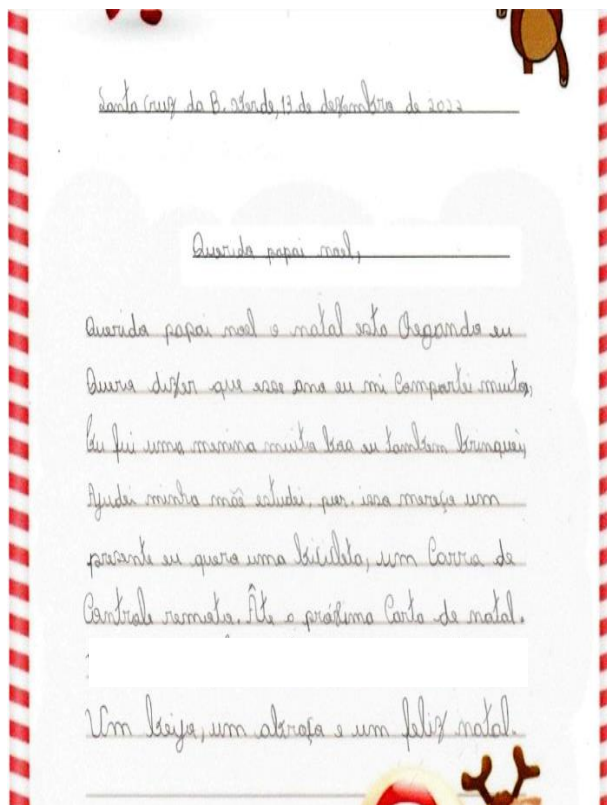 Santa Cruz da B. Verde, 13 de dezembro de 2022
Querido papai noel,
Querido papai noel o natal esta Qegando eu
Queria dizer que esse ano eu mi Comportei muito,
Eu fui uma menina muito boa eu tambem brinquei,
Ajudei minha mãe estudei, por isso mereço um
presente eu quero uma bicicleta, um Carro de
Controle remoto. Âte a próxima Carta de natal.
Um beijo, um abraço e um feliz natal.